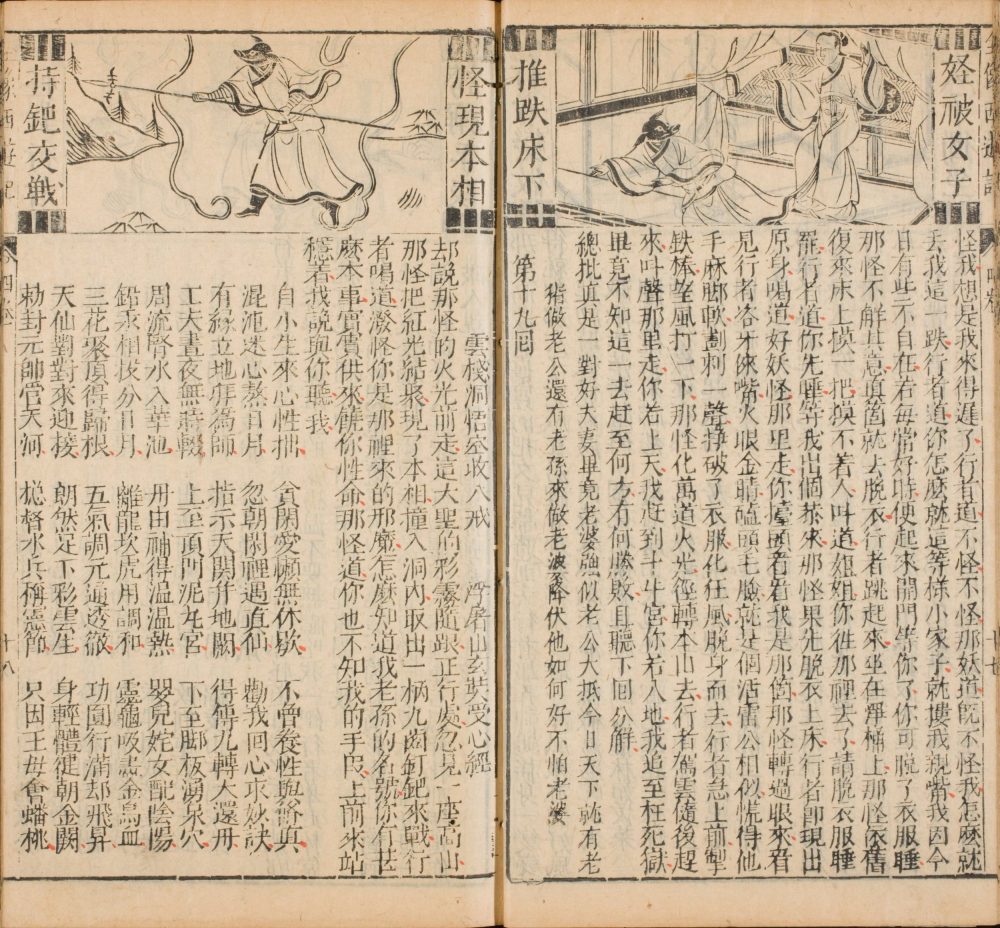 妖被女子
推跌床下
怪我想是我來得遲了行者道不怪不怪那妖道既不怪我怎麼就
丟我這一跌行者道你怎麼就這等樣小家子就摟我親嘴我因今
日有些不自在若每常好時便起來開門等你了你可脫了衣服睡
那怪不解其意真箇就去脫衣行者跳起來坐在淨桶上那怪依舊
復來床上摸一把摸不着人叫道姐姐你往那裡去了請脫衣服睡
罷行者道你先睡等我出個恭來那怪果先脫衣上床行者即現出
原身喝道好妖怪那里走你擡頭看看我是那箇那怪轉過眼來看
見行者咨牙倈嘴火眼金睛磕頭毛臉就是個活雷公相似慌得他
手麻脚軟劃剌一聲掙破了衣服化狂風脫身而去行者急上前掣
鉄棒望風打一下那怪化萬道火光徑轉本山去行者駕雲隨後趕
來叫聲那里走你若上天我赶到斗牛宮你若入地我追至枉死獄
畢竟不知這一去赶至何方有何勝敗且聽下囘分解
總批真是一對好夫妻畢竟老婆強似老公大抵今日天下就有老
豬做老公還有老孫來做老婆降伏他如何好不怕老婆
第十九囘
怪現本相
持鈀交戰
雲棧洞悟空收八戒 浮屠山玄奘受心經
却說那怪的火光前走這大聖的彩霧隨跟正行處忽見一座高山
那怪把紅光結聚現了本相撞入洞內取出一柄九齒釘鈀來戰行
者喝道潑怪你是那裡來的邪魔怎麼知道我老孫的名號你有甚
麼本事實實供來饒你性命那怪道你也不知我的手段上前來站
穩着我說與你聽我
自小生來心性拙 貪閑愛懶無休歇 不曾養性與修真
混沌迷心熬日月 忽朝閑裡遇真仙 勸我回心求妙訣
有緣立地拜為師 指示天關并地闕 得傳九轉大還丹
工夫晝夜無時輟 上至頂門泥丸宮 下至脚板湧泉穴
周流腎水入華池 丹田補得溫溫熱 嬰兒姹女配陰陽
鉛汞相投分日月 離龍坎虎用調和 靈龜吸盡金烏血
三花聚頂得歸根 五氣朝元通透徹 功圓行滿却飛昇
天仙對對來迎接 朗然足下彩雲生 身輕體健朝金闕
勅封元帥管天河 總督水兵稱憲節 只因王母會蟠桃
十八